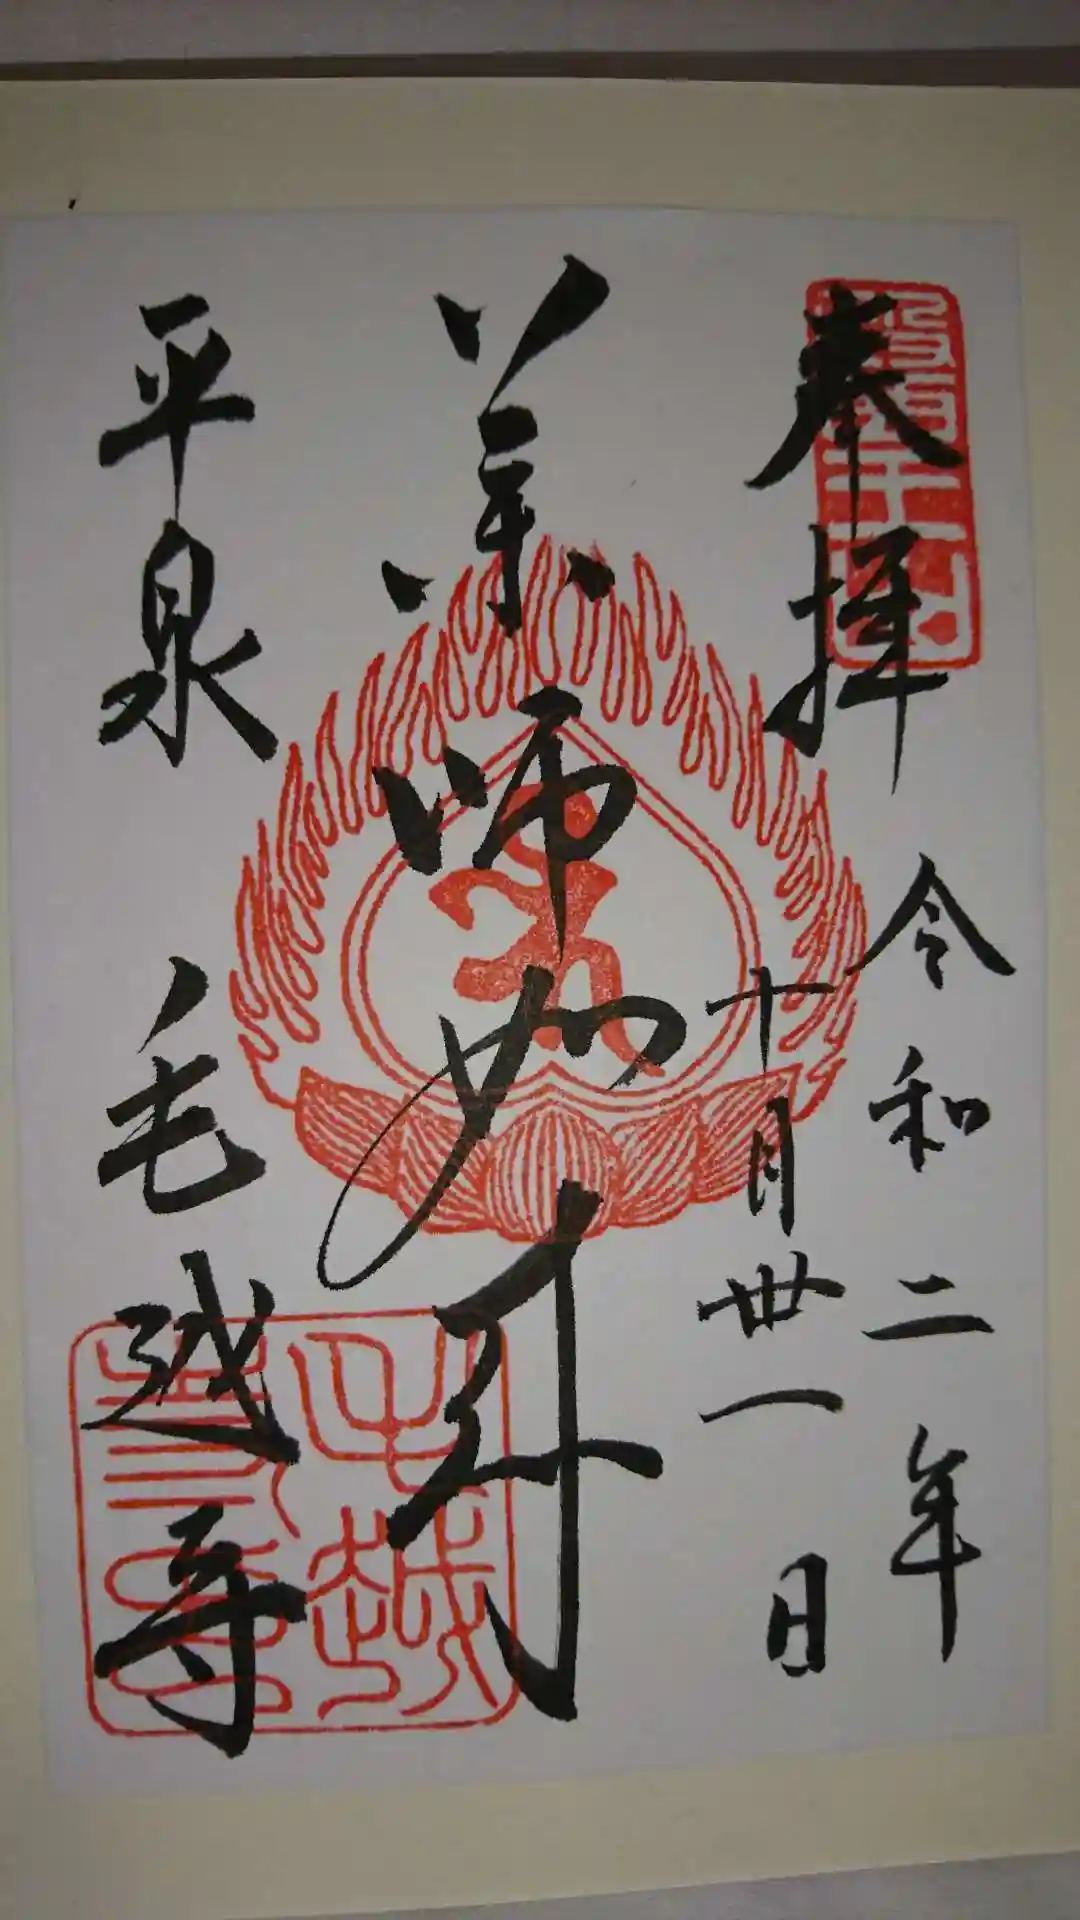 奉拝
令和二年
十月丗一日
薬師如来
平泉 毛越寺
毛越